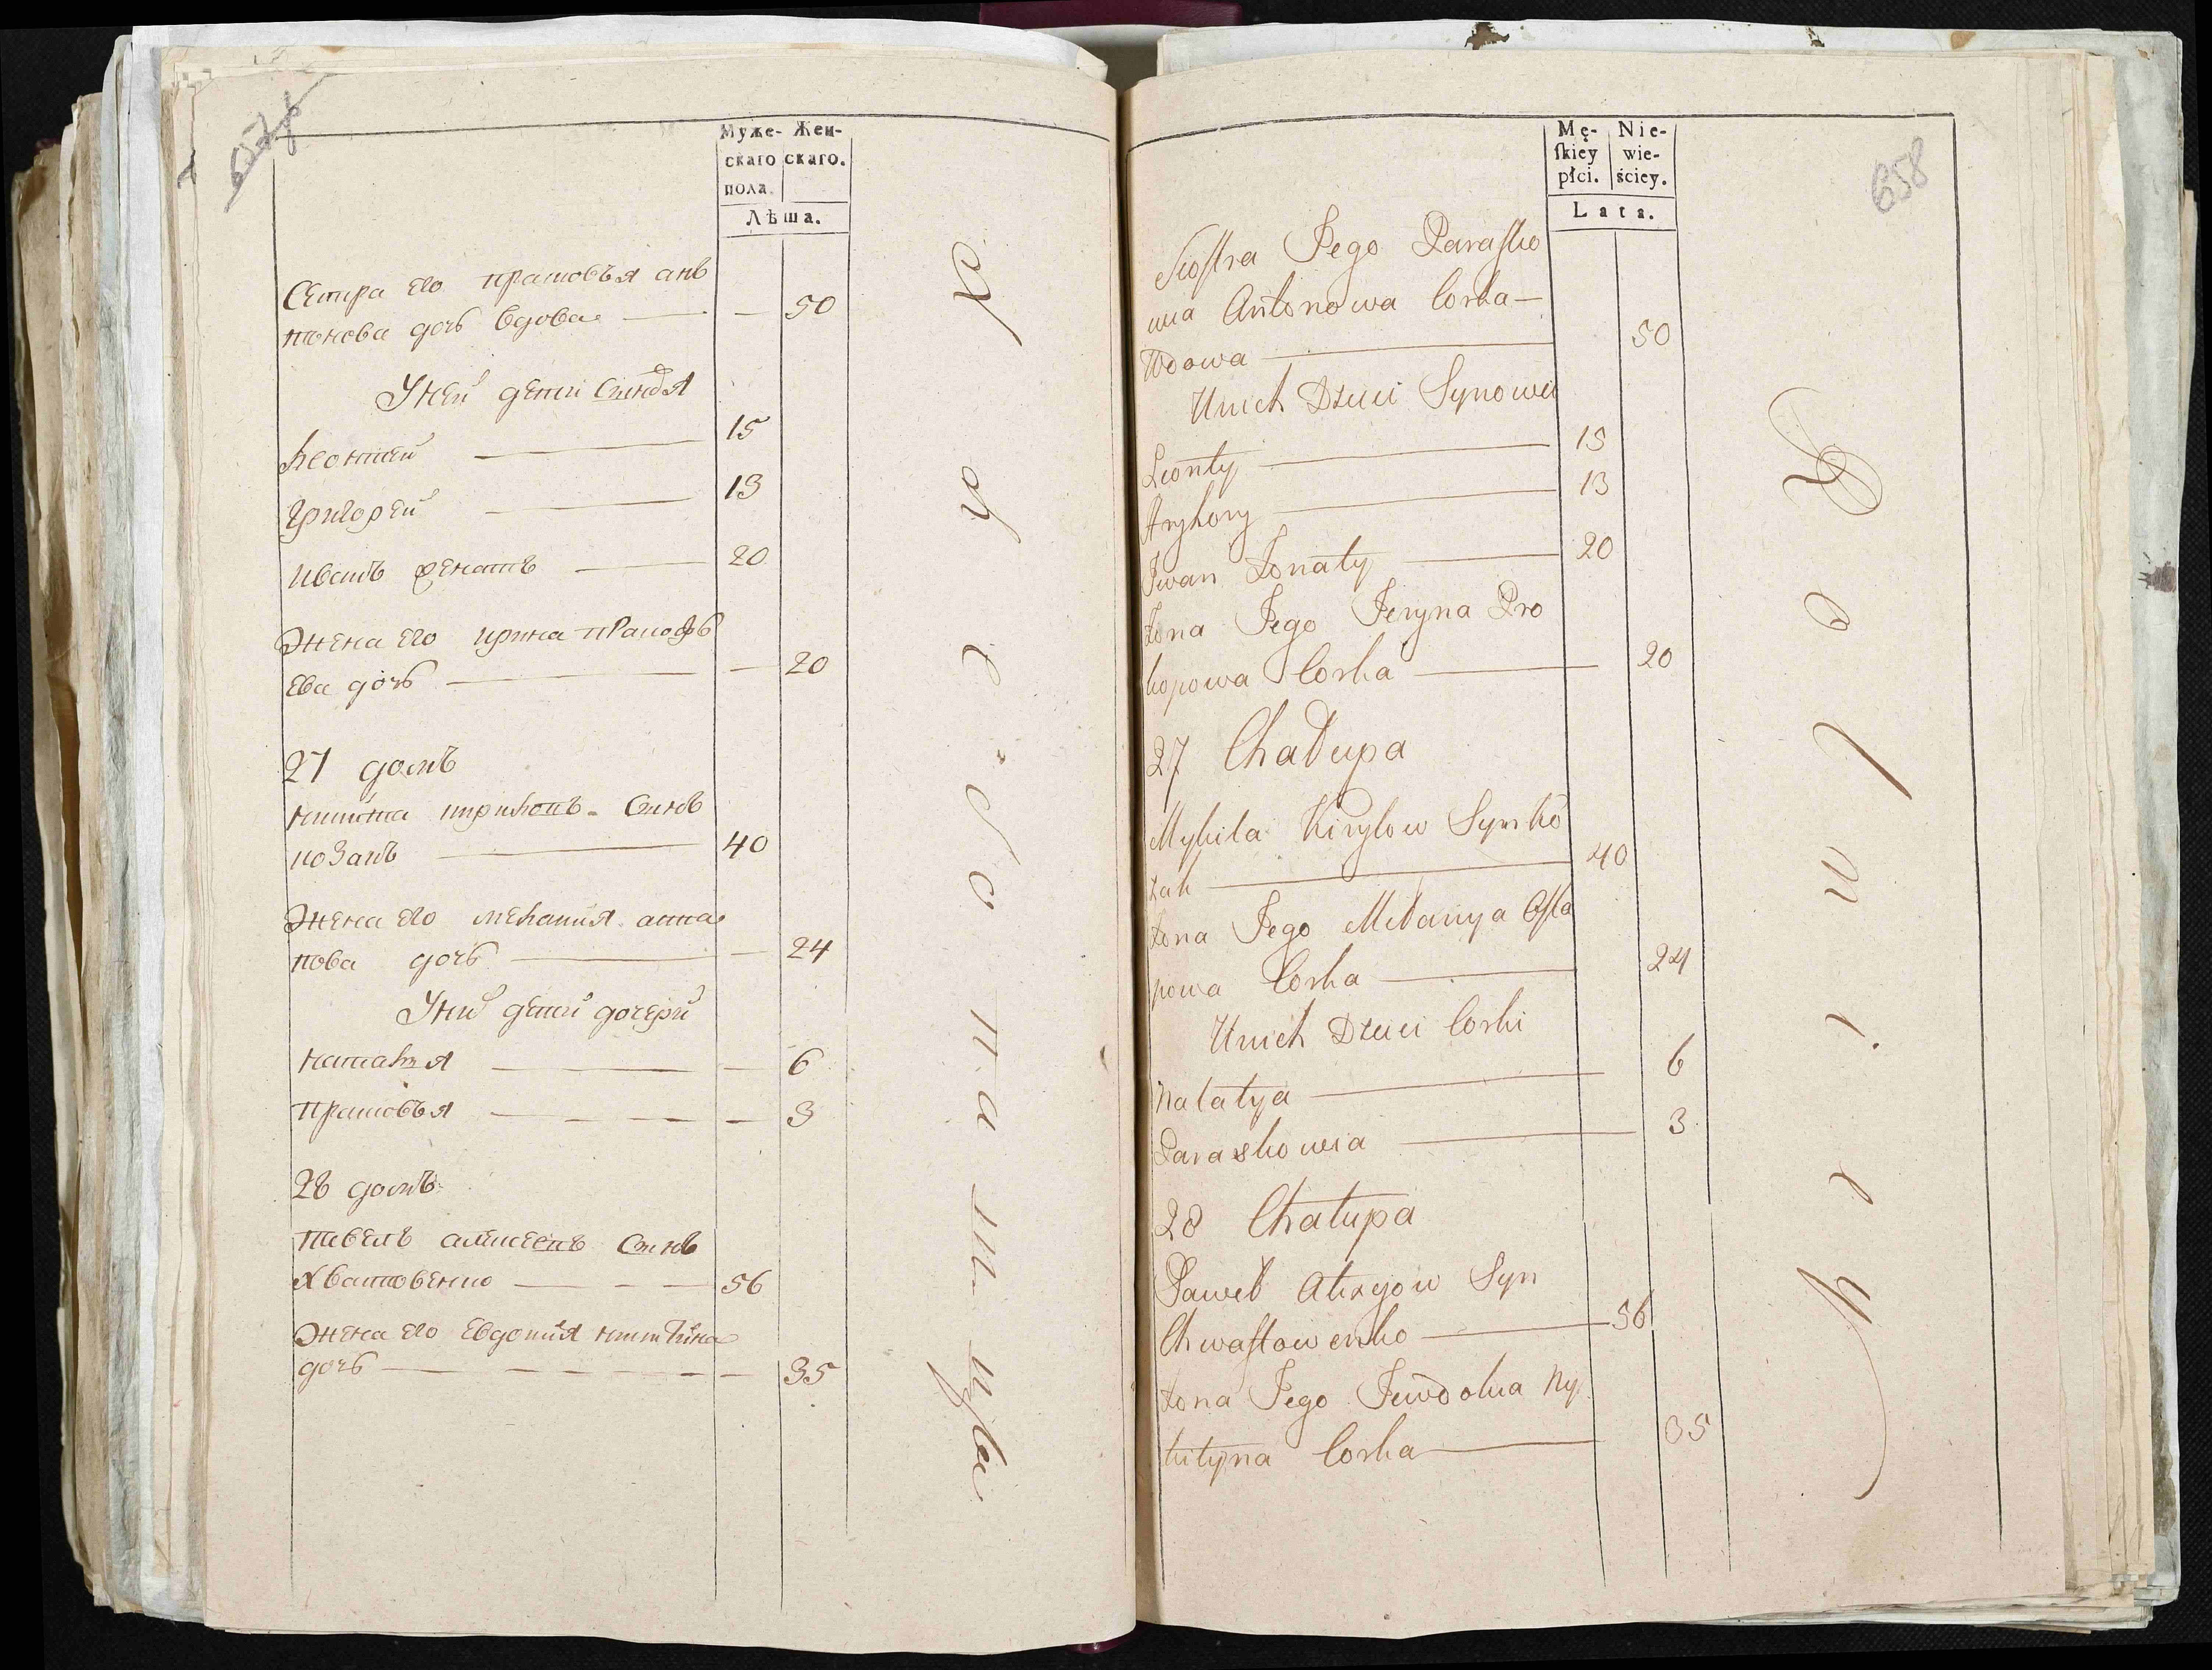 Муже- Жен-
скаго скаго.
пола.
Лѣша.
Сетра его прасковъя анъ
тонова дочь вдова — — 50
У ней дети синовя
Леонтей — 15
Григорей — 13
Иванъ женатъ — 20
Жена его ирина прокофь
ева дочь — — 20
27 домъ
Никита
козакъ — 40
Жена его мелания
пова дочь — — 24
У них детей дочери
Наталя — — 6
Прасковъя — — 3
28 домъ
Павелъ алексеевъ синъ
Хвастовенко — 56
Жена его Евдокия никитина
дочь — — 35
658
Mę- Nie-
ſkiey wie-
płci. ściey.
Lata.
Siostra Jego Parasko
wia Antonowa Corka —
Wdowa — 50
Unich Dzieci Synowie
Leonty — 15
Aryhory — 13
Iwan Żonaty — 20
Żona Jego Jeryna Pro
kopowa Corka — 20
27 Chałupa
Mykita Kirylow Syn Ko
zak — 40
Żona Jego Mełanya Osta
powa Corka — 24
Unich Dzieci Corki
Natatya — 6
Paraskowia — 3
28 Chałupa
Paweł Alexyow Syn
Chwastowenko — 56
Żona Jego Jewdokia Ny
kityna Corka — 35